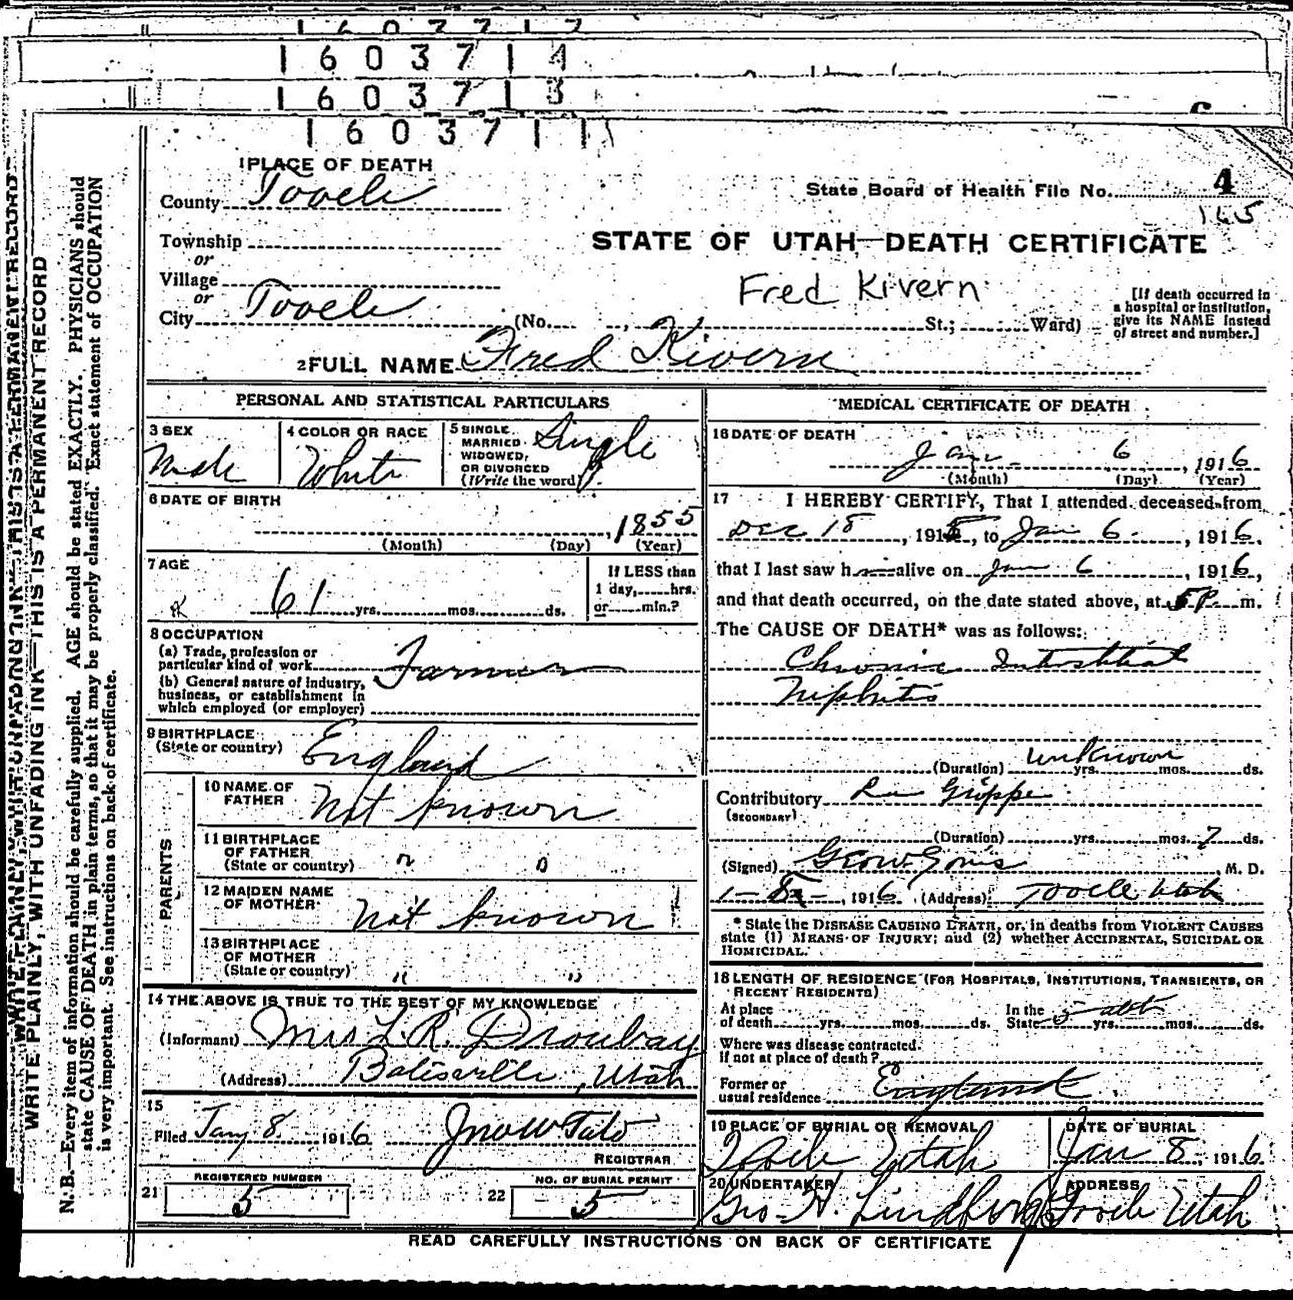 1 6 0 3 7 1 2
1 6 0 3 7 1 4
1 6 0 3 7 1 3
1 6 0 3 7 1 1
1 PLACE OF DEATH
County Tooele
State Board of Health File No. 4
165
Township
or
Village
or
City Tooele
STATE OF UTAH—DEATH CERTIFICATE
Fred Kivern
(No. , St.; Ward)
[If death occurred in
a hospital or institution,
give its NAME instead
of street and number.]
2 FULL NAME Fred Kivern
PERSONAL AND STATISTICAL PARTICULARS
3 SEX
Male
4 COLOR OR RACE
White
5 SINGLE,
MARRIED
WIDOWED,
OR DIVORCED
(Write the word)
Single
6 DATE OF BIRTH
, 1855
(Month) (Day) (Year)
7 AGE
61 yrs. mos. ds.
If LESS than
1 day, hrs.
or min.?
8 OCCUPATION
(a) Trade, profession or
particular kind of work Farmer
(b) General nature of industry,
business, or establishment in
which employed (or employer)
9 BIRTHPLACE
(State or country) England
PARENTS
10 NAME OF
FATHER Not known
11 BIRTHPLACE
OF FATHER
(State or country) " "
12 MAIDEN NAME
OF MOTHER Not known
13 BIRTHPLACE
OF MOTHER
(State or country) " "
14 THE ABOVE IS TRUE TO THE BEST OF MY KNOWLEDGE
(Informant) Mrs L. R. Droubay
(Address) Batesville, Utah
15
Filed Jany 8 1916 Jno W Tate
REGISTRAR
REGISTERED NUMBER
21 5
NO. OF BURIAL PERMIT
22 5
MEDICAL CERTIFICATE OF DEATH
16 DATE OF DEATH
Jan 6, 1916
(Month) (Day) (Year)
17 I HEREBY CERTIFY, That I attended deceased from
Dec 18, 1915, to Jan 6, 1916,
that I last saw h alive on Jan 6, 1916,
and that death occurred, on the date stated above, at 5 P. m.
The CAUSE OF DEATH* was as follows:
Chronic Interstitial
Nephitis
unknown
(Duration) yrs. mos. ds.
Contributory La Grippe
(SECONDARY)
(Duration) yrs. mos. 7 ds.
(Signed) M. D.
1-8-, 1916 (Address) Tooele Utah
* State the DISEASE CAUSING DEATH, or, in deaths from VIOLENT CAUSES
state (1) MEANS OF INJURY; and (2) whether ACCIDENTAL, SUICIDAL OR
HOMICIDAL.
18 LENGTH OF RESIDENCE (FOR HOSPITALS, INSTITUTIONS, TRANSIENTS, OR
RECENT RESIDENTS)
At place
of death yrs. mos. ds.
In the
State 5 yrs. mos. ds.
Where was disease contracted.
if not at place of death?
Former or
usual residence England
19 PLACE OF BURIAL OR REMOVAL
Tooele Utah
DATE OF BURIAL
Jan 8, 1916
20 UNDERTAKER
Geo. H. Lindberg
ADDRESS
Tooele Utah
READ CAREFULLY INSTRUCTIONS ON BACK OF CERTIFICATE
WRITE PLAINLY, WITH UNFADING INK—THIS IS A PERMANENT RECORD
N. B.—Every item of information should be carefully supplied. AGE should be stated EXACTLY. PHYSICIANS should
state CAUSE OF DEATH in plain terms, so that it may be properly classified. Exact statement of OCCUPATION
is very important. See instructions on back of certificate.